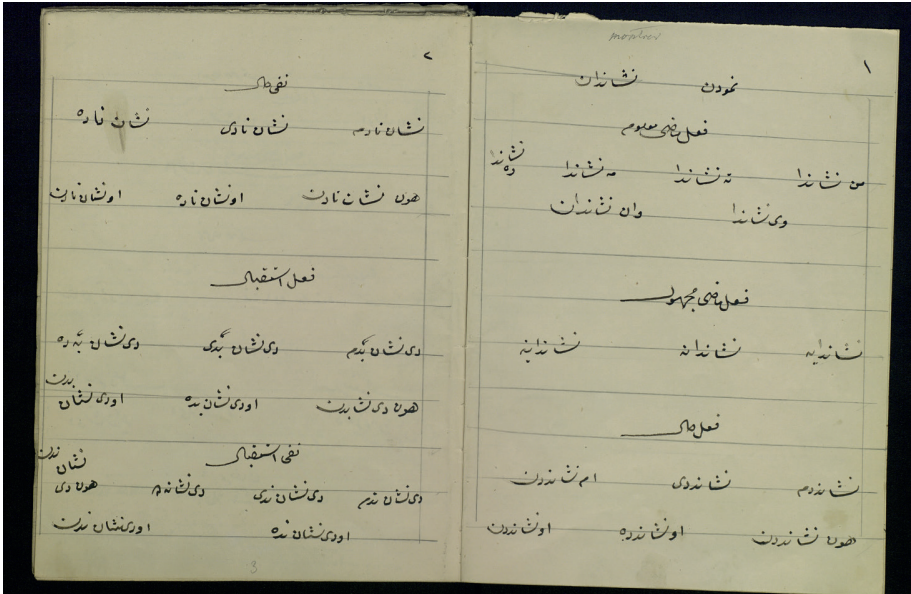 montrer
١
نمودن نشاندان
فعل ماضی معلوم
من نشاندا ته نشاندا مه نشاندا
نشاندا
وه
وی نشاندا وان نشاندان
فعل ماضی مجهول
نشاندایه نشاندانه نشانداینه
فعل حال
نشاندده‌م نشانددی ام نشانددن
هون نشانددن او نشاندده او نشانددن
٢
نفی حال
نشان نادم نشان نادی نشان ناده
هون نشان نادن او نشان ناده او نشان نادن
فعل استقبال
دی نشان بدم دی نشان بدی دی نشان بده
هون دی نشان بدن او دی نشان بده او دی نشان
بدن
نفی استقبال
نشان ندن
دی نشان ندم دی نشان ندی دی نشان هون دی
او دی نشان نده او دی نشان ندن
3